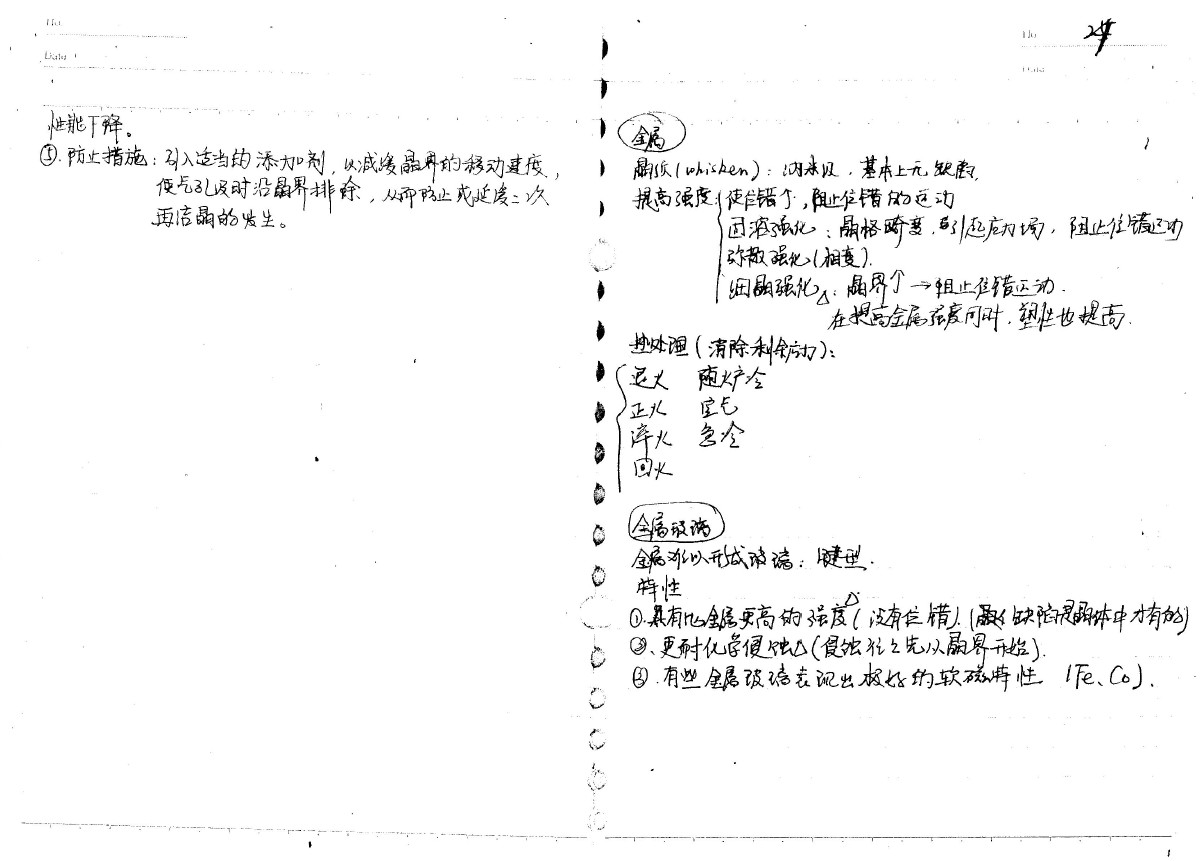 No
Date
性能下降。
⑤. 防止措施: 引入适当的添加剂, 以减缓晶界的移动速度,
使气孔及时沿晶界排除, 从而防止或延缓二次
再结晶的发生。
No 24
Date
金属
晶须(whisker): 纳米级, 基本上无缺陷.
提高强度: 使位错个, 阻止位错的运动
固溶强化: 晶格畸变, 引起应力场, 阻止位错运动
弥散强化(相变).
细晶强化△: 晶界个→阻止位错运动.
在提高金属强度同时, 塑性也提高.
热处理(消除剩余应力):
退火 随炉冷
正火 空气
淬火 急冷
回火
金属玻璃
金属难以形成玻璃: 键型.
特性
①. 具有比金属更高的强度△(没有位错). (缺陷是晶体中才有的)
②. 更耐化学侵蚀△(侵蚀往往先从晶界开始).
③. 有些金属玻璃表现出极好的软磁特性 (Fe、Co).